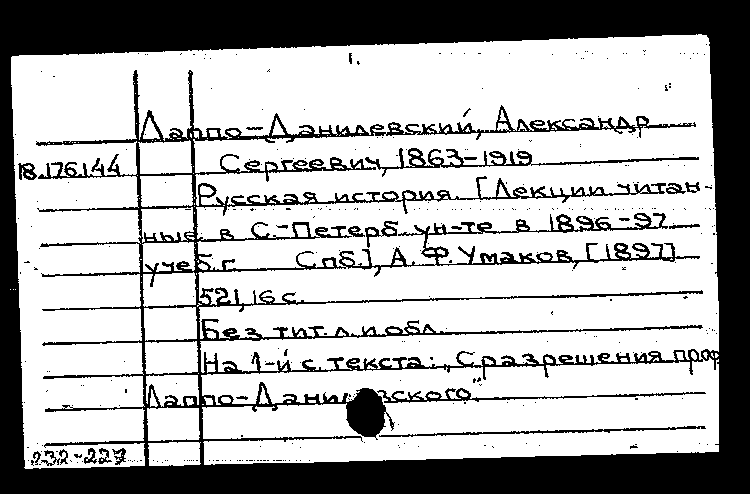 1.
Лаппо-Данилевский, Александр
18.176.144 Сергеевич, 1863-1919
Русская история. [Лекции читан-
ные в С.-Петерб. ун-те в 1896-97
учеб.г. Спб.], А. Ф. Умаков, [1897].
521, 16 с.
Без тит. л. и обл.
На 1-й с. текста: „С разрешения проф
Лаппо-Данилевского"
232-227